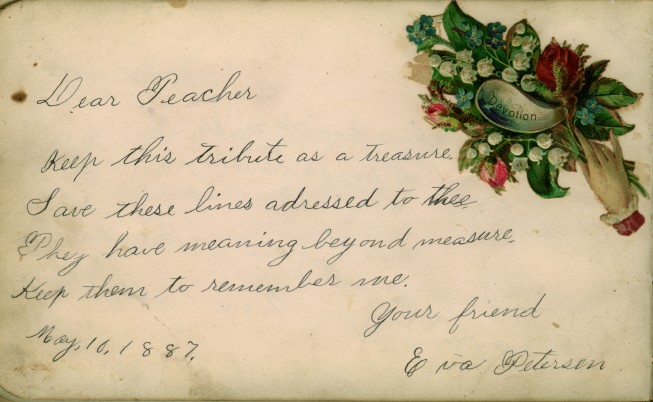 Devotion
Dear Teacher
Keep this tribute as a treasure
Save these lines adressed to thee
They have meaning beyond measure.
Keep them to remember me.
Your friend
May, 10, 1887.
Eva Petersen